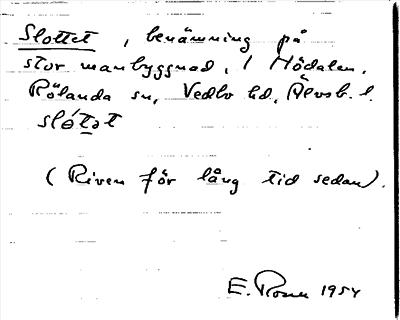 Slottet, benämning på
stor manbyggnad, i Hödalen,
Rölanda sn, Vedbo hd, Älvsb. l.
slót̲ət
(Riven för lång tid sedan).
E. Rosen 1954